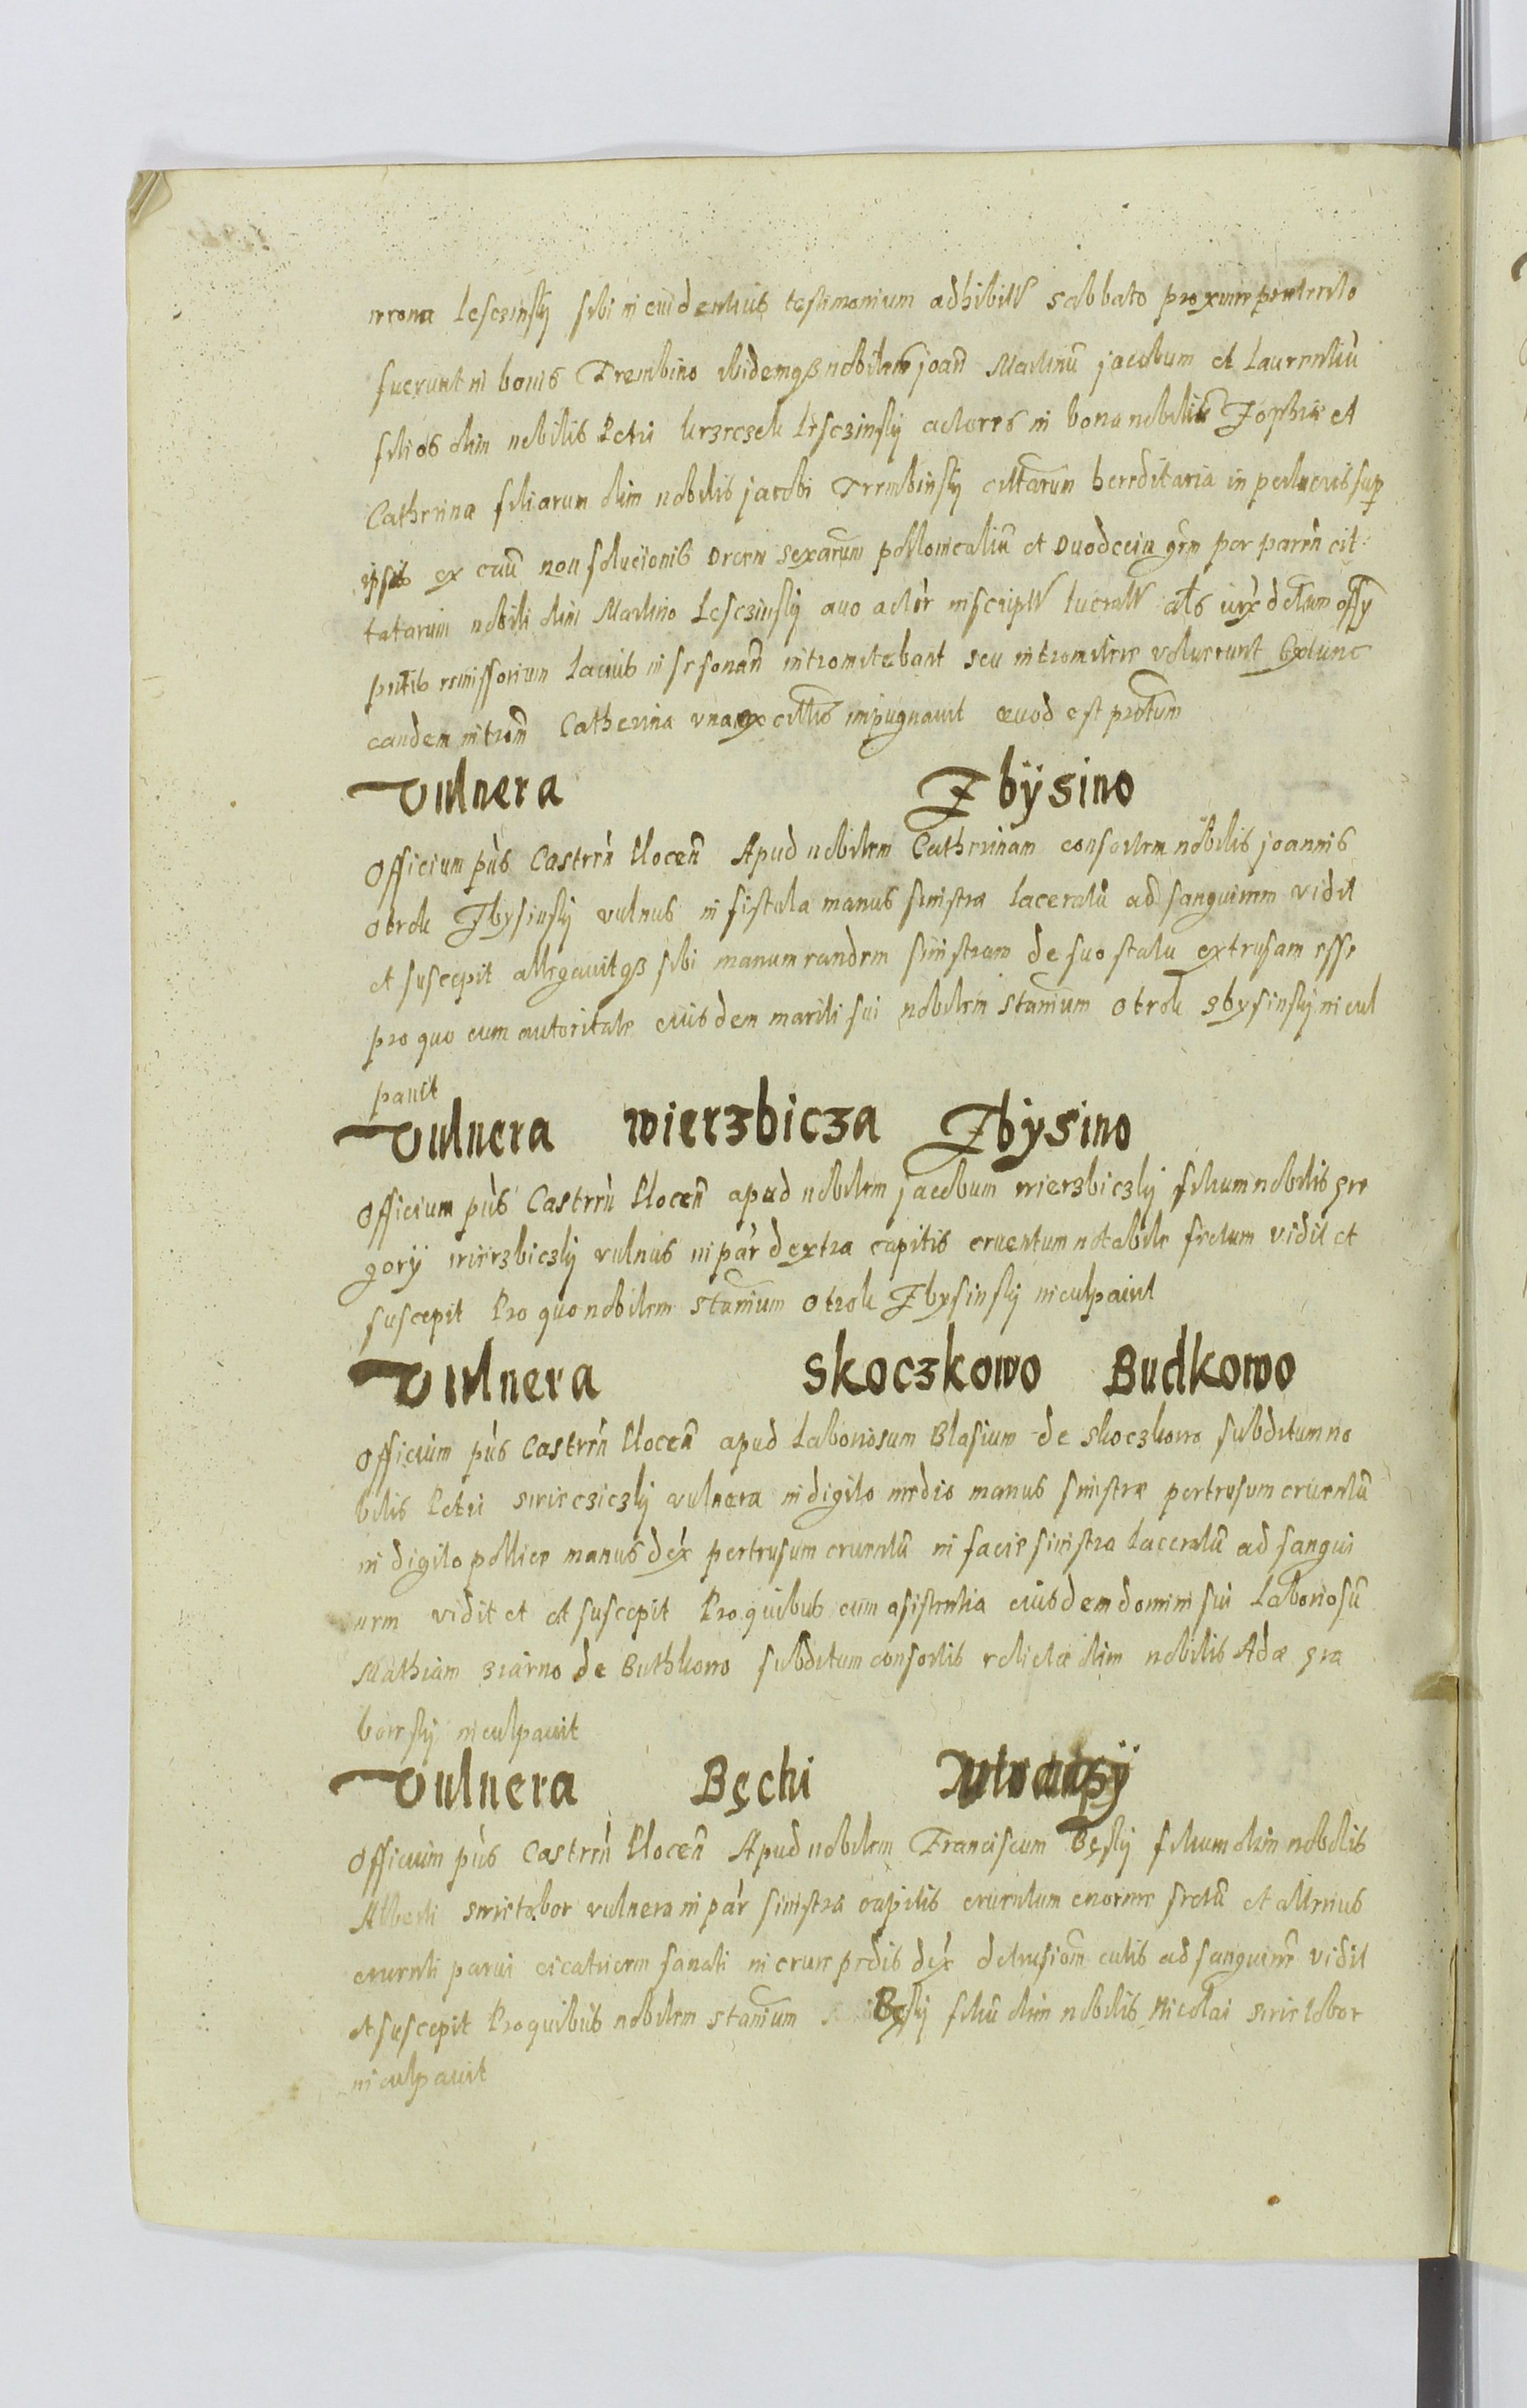 Lesczinsky sibi in euidentius testimonium adhibitis sabbato proxime preterito
fuerunt in bonis Trembino ibidemqз nobilem joañ Martinũ jacobum et Laurentiũ
filios olim nobilis Petri krzeczek Lesczinsky actores in bona nobiliũ Zophiæ et
Catherinæ filiarum olim nobilis jacobi Trembinsky citatarum hereditaria in
ipsis ex cau non solucionis Decem sexarum polloniculiũ et Duodecim grm per paren cit
tatarum nobili olim Martino Lesczinsky auo actor inscriptis als iux dctum offy
pntis remissorium Lacius in se sonañ intromitebant seu intromitere voluerunt Extunc
eandem introm Catherina vna ex cittis impugnauit quod est protum
Vulnera Zbÿsino
Officium pñs Castreñ Ploceñ Apud nobilem Catherinam consortem nobilis joannis
Otrok Zbysinsky vulnus in fistula manus sinistræ laceratũ ad sanguinem vidit
et suscepit allegauitqз sibi manum eandem sinistram de suo statu extrusam esse
pro quo cum autoritate eiusdem mariti sui nobilem stanium Otrok zbysinsky incul
pauit
Vulnera Wierzbicza Zbÿsino
Officium pñs Castreñ Ploceñ apud nobilem jacobum wierzbiczky filium nobilis gre
gory wierzbiczky vulnus in par dextra capitis cruentum notabile sictum vidit et
suscepit Pro quo nobilem stanium Otrok Zbysinsky inculpauit
Vulnera Skoczkowo Budkowo
Officium pñs Castreñ Ploceñ apud Laboriosum Blasium de Skoczkowo subditum no
bilis Petri swiecziczky vulnera in digito medio manus sinistræ pertrusum cruentũ
in digito pollice manus dex pertrusum cruentũ in facie sinistra Laceratũ ad sangui
nem vidit et et suscepit Pro quibus cum asistentia eiusdem domini sui Laboriosũ
Mathiam ziarno de Buthkowo subditum consortis relictæ olim nobilis Adæ gra
bowsky inculpauit
Vulnera Bęchi
Officium pñs Castreñ Ploceñ Apud nobilem Franciscum Bęsky filium olim nobilis
Alberti swietobor vulnera in par sinistra capitis cruentum enorme sectũ et alterius
cruenti parui cicatricem sanati in crure pedis dex detrusiom cutis ad sanguinem vidit
et suscepit Pro quibus nobilem stanium Bęsky filiũ olim nobilis Nicolai swietobor
inculpauit